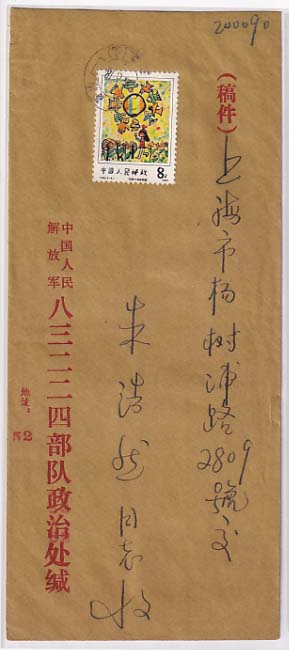 200090
(稿件)
上海市杨树浦路2809號交
中国人民邮政
8分
朱浩然同志收
中国人民
解放军
八三二二四部队政治处缄
地址:
52